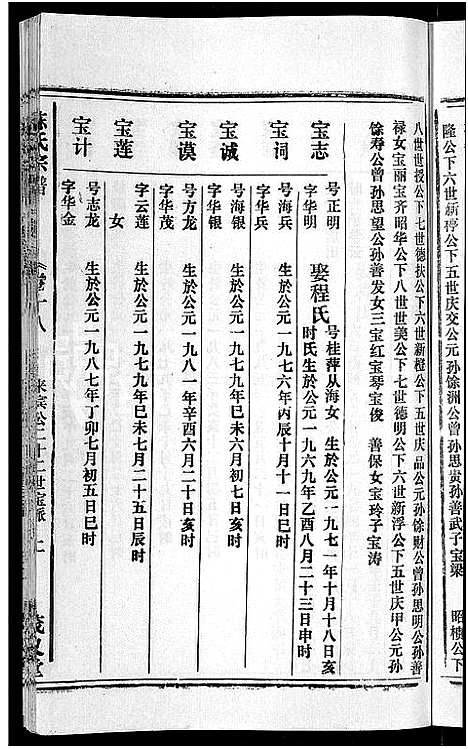 隆公下六世新浮公下五世庆交公元孙馀洲公曾孙思贵孙善武子宝梁 昭楼公下
八世世授公下七世德扶公下六世新橙公下五世庆品公元孙馀财公曾孙思明公孙善
禄女宝丽宝齐昭华公下八世世美公下七世德明公下六世新浮公下五世庆甲公元孙
馀寿公曾孙思望公孙善发女三宝红宝琴宝俊 善保女宝玲子宝涛
宝志 号正明 字华明 娶程氏 号桂萍从海女 生於公元一九七一年十月十八日亥时 氏生於公元一九六九年乙酉八月二十三日申时
宝词 号志兵 字华兵 生於公元一九七六年丙辰十月十一日亥时
宝诚 号海银 字华银 生於公元一九七九年巳未六月初七日亥时
宝谟 号方龙 字华茂 生於公元一九八一年辛酉六月二十日亥时
宝莲 字云莲 女 生於公元一九七九年巳未七月二十五日辰时
宝计 号志龙 字华金 生於公元一九八七年丁卯七月初五日巳时
氏宗谱 十八 来宾公二十二世宝派 上